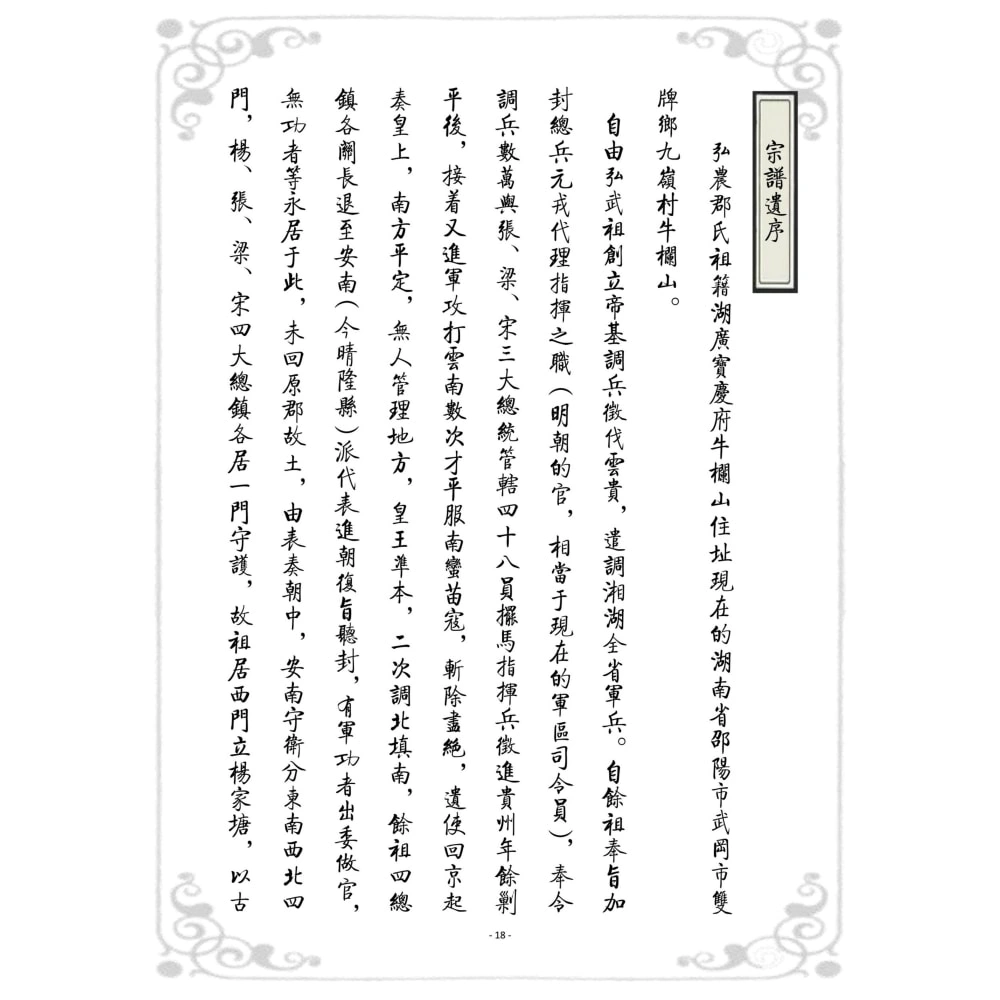 宗譜遺序
弘農郡氏祖籍湖廣寶慶府牛欄山住址現在的湖南省邵陽市武岡市雙
牌鄉九嶺村牛欄山。
自由弘武祖創立帝基調兵徵伐雲貴，遣調湘湖全省軍兵。自餘祖奉旨加
封總兵元戎代理指揮之職（明朝的官，相當于現在的軍區司令員），奉令
調兵數萬與張、梁、宋三大總統管轄四十八員擺馬指揮兵徵進貴州年餘剿
平後，接着又進軍攻打雲南數次才平服南蠻苗寇，斬除盡絕，遺使回京起
奏皇上，南方平定，無人管理地方，皇王準本，二次調北填南，餘祖四總
鎮各關長退至安南（今晴隆縣）派代表進朝復旨聽封，有軍功者出委做官，
無功者等永居于此，未回原郡故土，由表奏朝中，安南守衛分東南西北四
門，楊、張、梁、宋四大總鎮各居一門守護，故祖居西門立楊家塘，以古
- 18 -